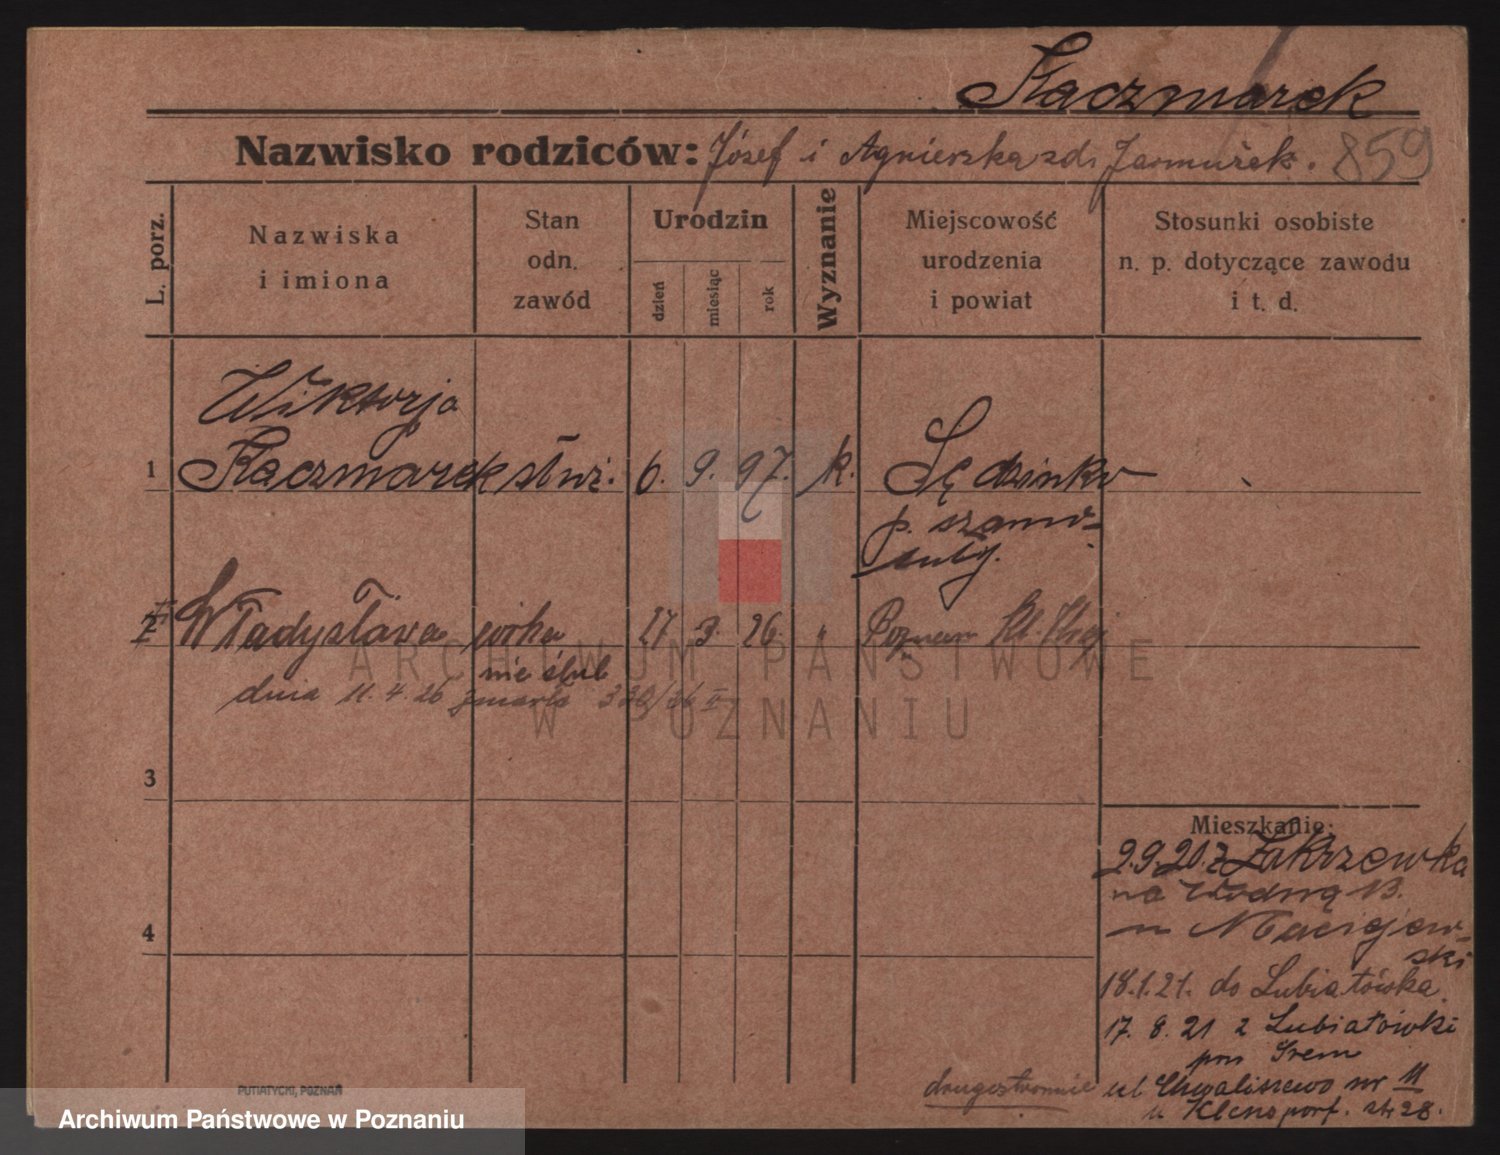 Kaczmarek
Nazwisko rodziców: Józef i Agnieszka zd. Jarmużek. 859
L. porz.
Nazwiska
i imiona
Stan
odn.
zawód
Urodzin
dzień
miesiąc
rok
Wyznanie
Miejscowość
urodzenia
i powiat
Stosunki osobiste
n. p. dotyczące zawodu
i t. d.
Wiktorja
1 Kaczmarek służ. 6. 9. 97. k. Sędzinko
p. szamo-
tuły.
2 Władysława córka 27 3. 26. " Poznań
nie ślub
dnia 11.4.26 zmarła
3
4
Mieszkanie:
2.9.20. z Zakrzewka
na Wodną 13.
u Maciejew-
ski
18.1.21. do Lubiatówka
17.8.21 z Lubiatówki
pow Śrem
drugostronnie
ul. Chwaliszewo nr 11
u
PUTIATYCKI, POZNAŃ
ARCHIWUM PAŃSTWOWE
W POZNANIU
Archiwum Państwowe w Poznaniu